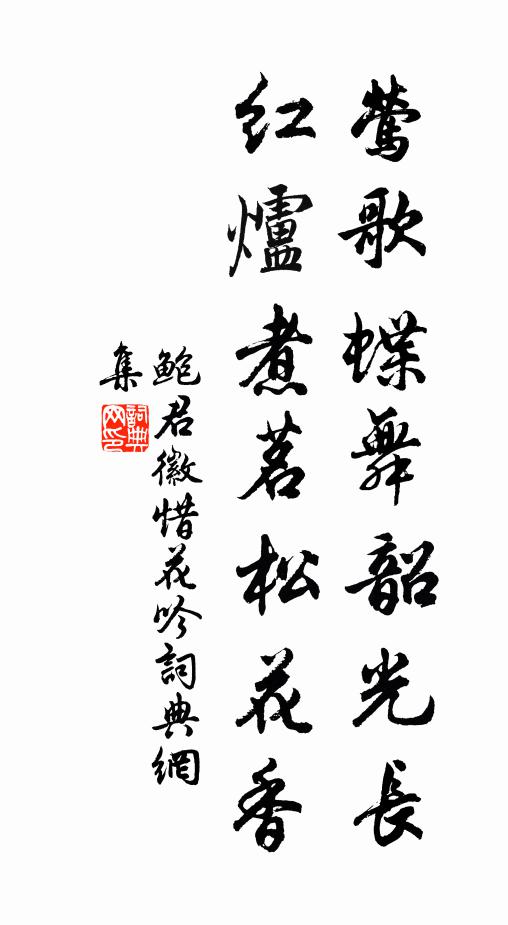 莺歌蝶舞韶光長
红爐煮茗松花香
鲍君徽惜花吟詞典網
集
詞典网印